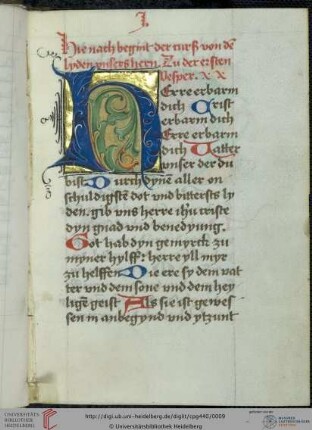 I.
Hie nach begint der curß von dē
lyden vnsers hern. Zu der ersten
vesper. x x
HErre erbarm
dich Crist
erbarm dich
Erre erbarm
dich Vatter
vnser der du
bist Durch dyne̅ aller on
schuldigste̅ dot vnd bitterste̅ ly
den. gib vns herre ihu criste
dyn gnad vnd benedyung.
Got hab dyn gemyrck zu
myner hylff: herre yll myr
zu helffen Die ere sy dem vat
ter vnd dem sone vnd dem hey
lige̅ geist Als sie ist gewes
sen in anbegynd vnd ytzunt
UNIVERSITÄTS-
BIBLIOTHEK
HEIDELBERG
http://digi.ub.uni-heidelberg.de/diglit/cpg440/0009
© Universitätsbibliothek Heidelberg